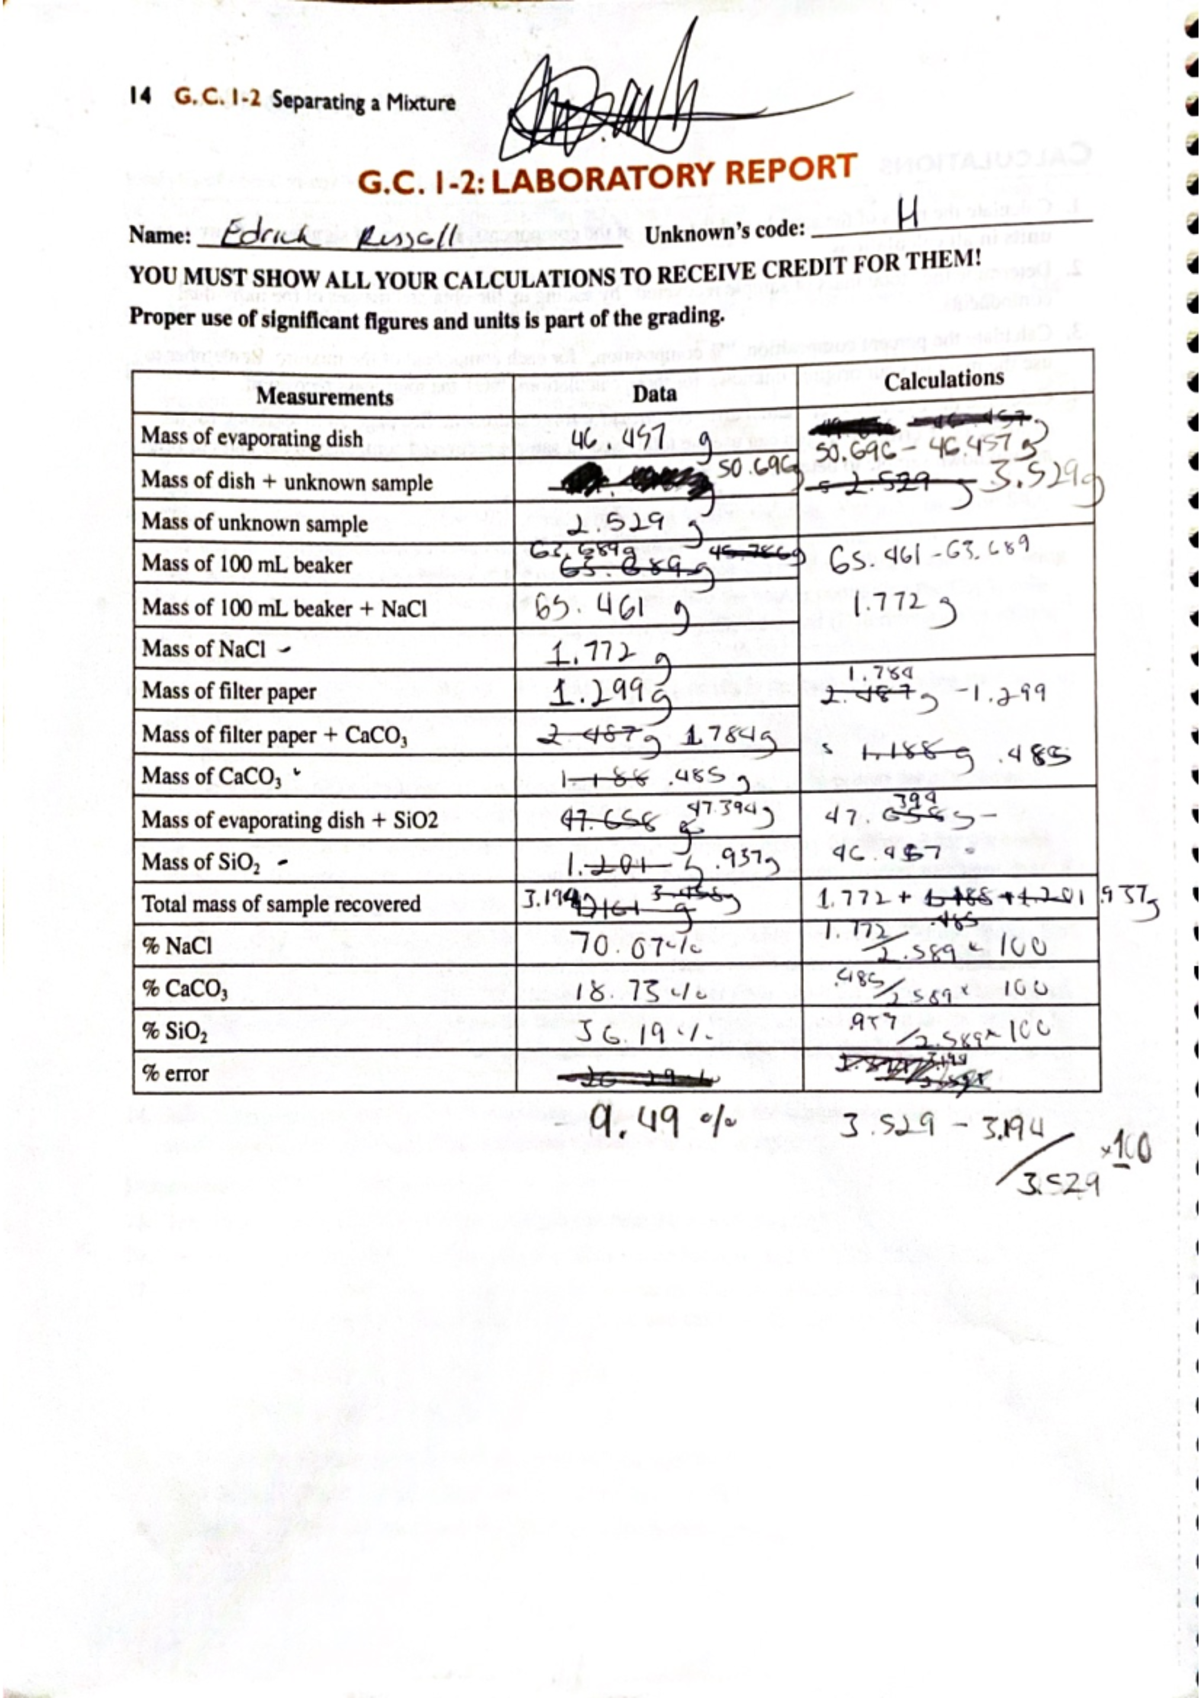 14 G.C. 1-2 Separating a Mixture
G.C. 1-2: LABORATORY REPORT
Name: Edrick Russell Unknown's code: H
YOU MUST SHOW ALL YOUR CALCULATIONS TO RECEIVE CREDIT FOR THEM!
Proper use of significant figures and units is part of the grading.
Measurements Data Calculations
Mass of evaporating dish 46.457 g 50.696 - 46.457 g
Mass of dish + unknown sample 50.696g 2.529 g 3.529g
Mass of unknown sample 2.529 g
Mass of 100 mL beaker 63.689g 63.689 g 45.786g 65.461 - 63.689
Mass of 100 mL beaker + NaCl 65.461 g 1.772 g
Mass of NaCl 1.772 g
Mass of filter paper 1.299g 1.784 2.487g - 1.299
Mass of filter paper + CaCO3 2.487g 1.784g 1.188g .485
Mass of CaCO3 1.188 .485 g
Mass of evaporating dish + SiO2 47.658 g 47.394g 47.658g 394 -
Mass of SiO2 1.201 .937g 46.457
Total mass of sample recovered 3.194g 1.772 + 1.188 + 1.201 .937g
.485
% NaCl 70.07% 1.772/2.589 × 100
% CaCO3 18.73% .485/2.589 × 100
% SiO2 36.19% .937/2.589 × 100
% error
9.49 % 3.529 - 3.194/3.529 ×100